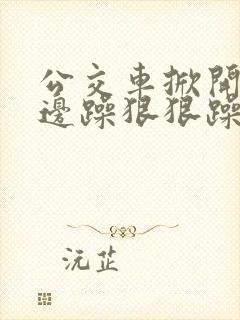 公交車掀開
邊躁狠狠躁
沅芷